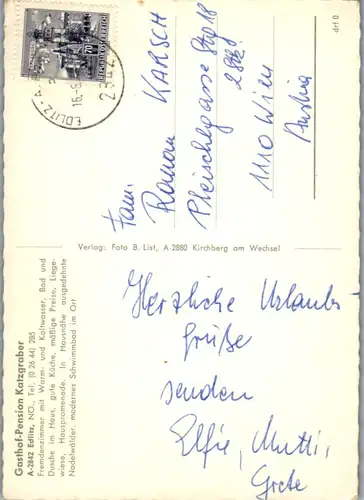 Gasthof-Pension Katzgraber
A-2842 Edlitz, NÖ., Tel. (0 26 44) 285
Fremdenzimmer mit Warm- und Kaltwasser, Bad und
Dusche im Haus, gute Küche, mäßige Preise, Liege-
wiese, Hauspromenade. In Hausnähe ausgedehnte
Nadelwälder, modernes Schwimmbad im Ort
Verlag: Foto B. List, A-2880 Kirchberg am Wechsel
drf D
EDLITZ
16.
REPUBLIK ÖSTERREICH
Fam.
Roman KARSCH
Pleischlgasse Stg 18
1110 Wien
Austria
Herzliche Urlaubs-
grüße
senden
Elfie, Mutti,
Grete